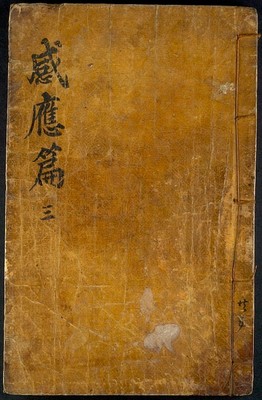 感應篇 三